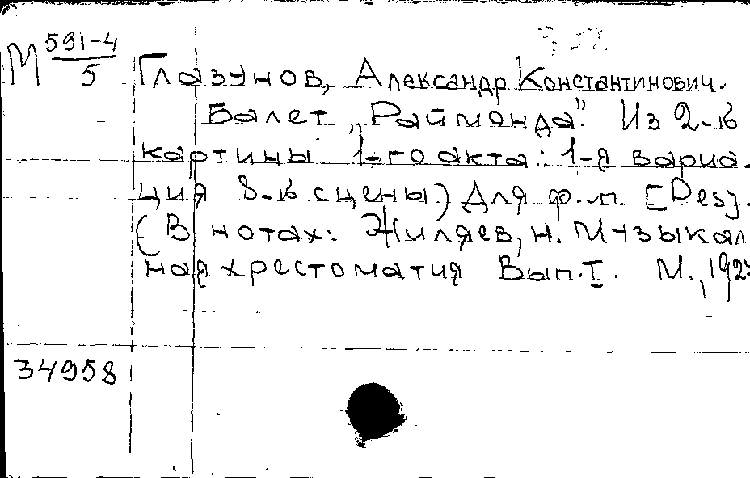 М 591-4/5
Глазунов, Александр Константинович.
Балет „Раймонда". Из 2-й
картины 1-го акта: 1-я вариа-
ция 8-й сцены.) Для ф.-п. [Des].
(В нотах: Жиляев, Н. Музыкал
ная хрестоматия Вып. I. М., 192
34958